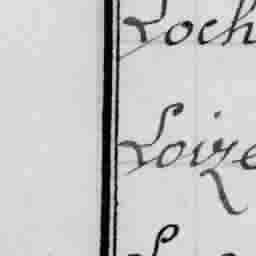 Loch
Loize